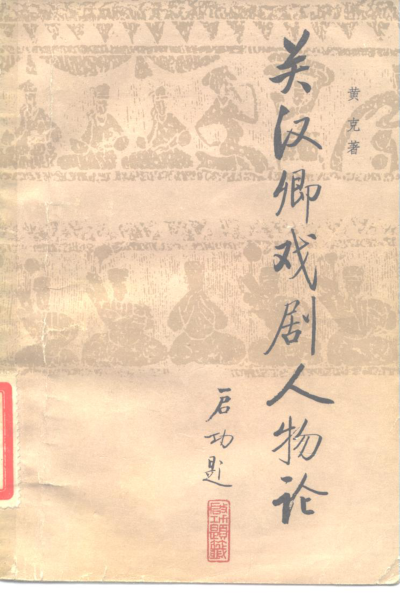 黄克著
关汉卿戏剧人物论
启功题